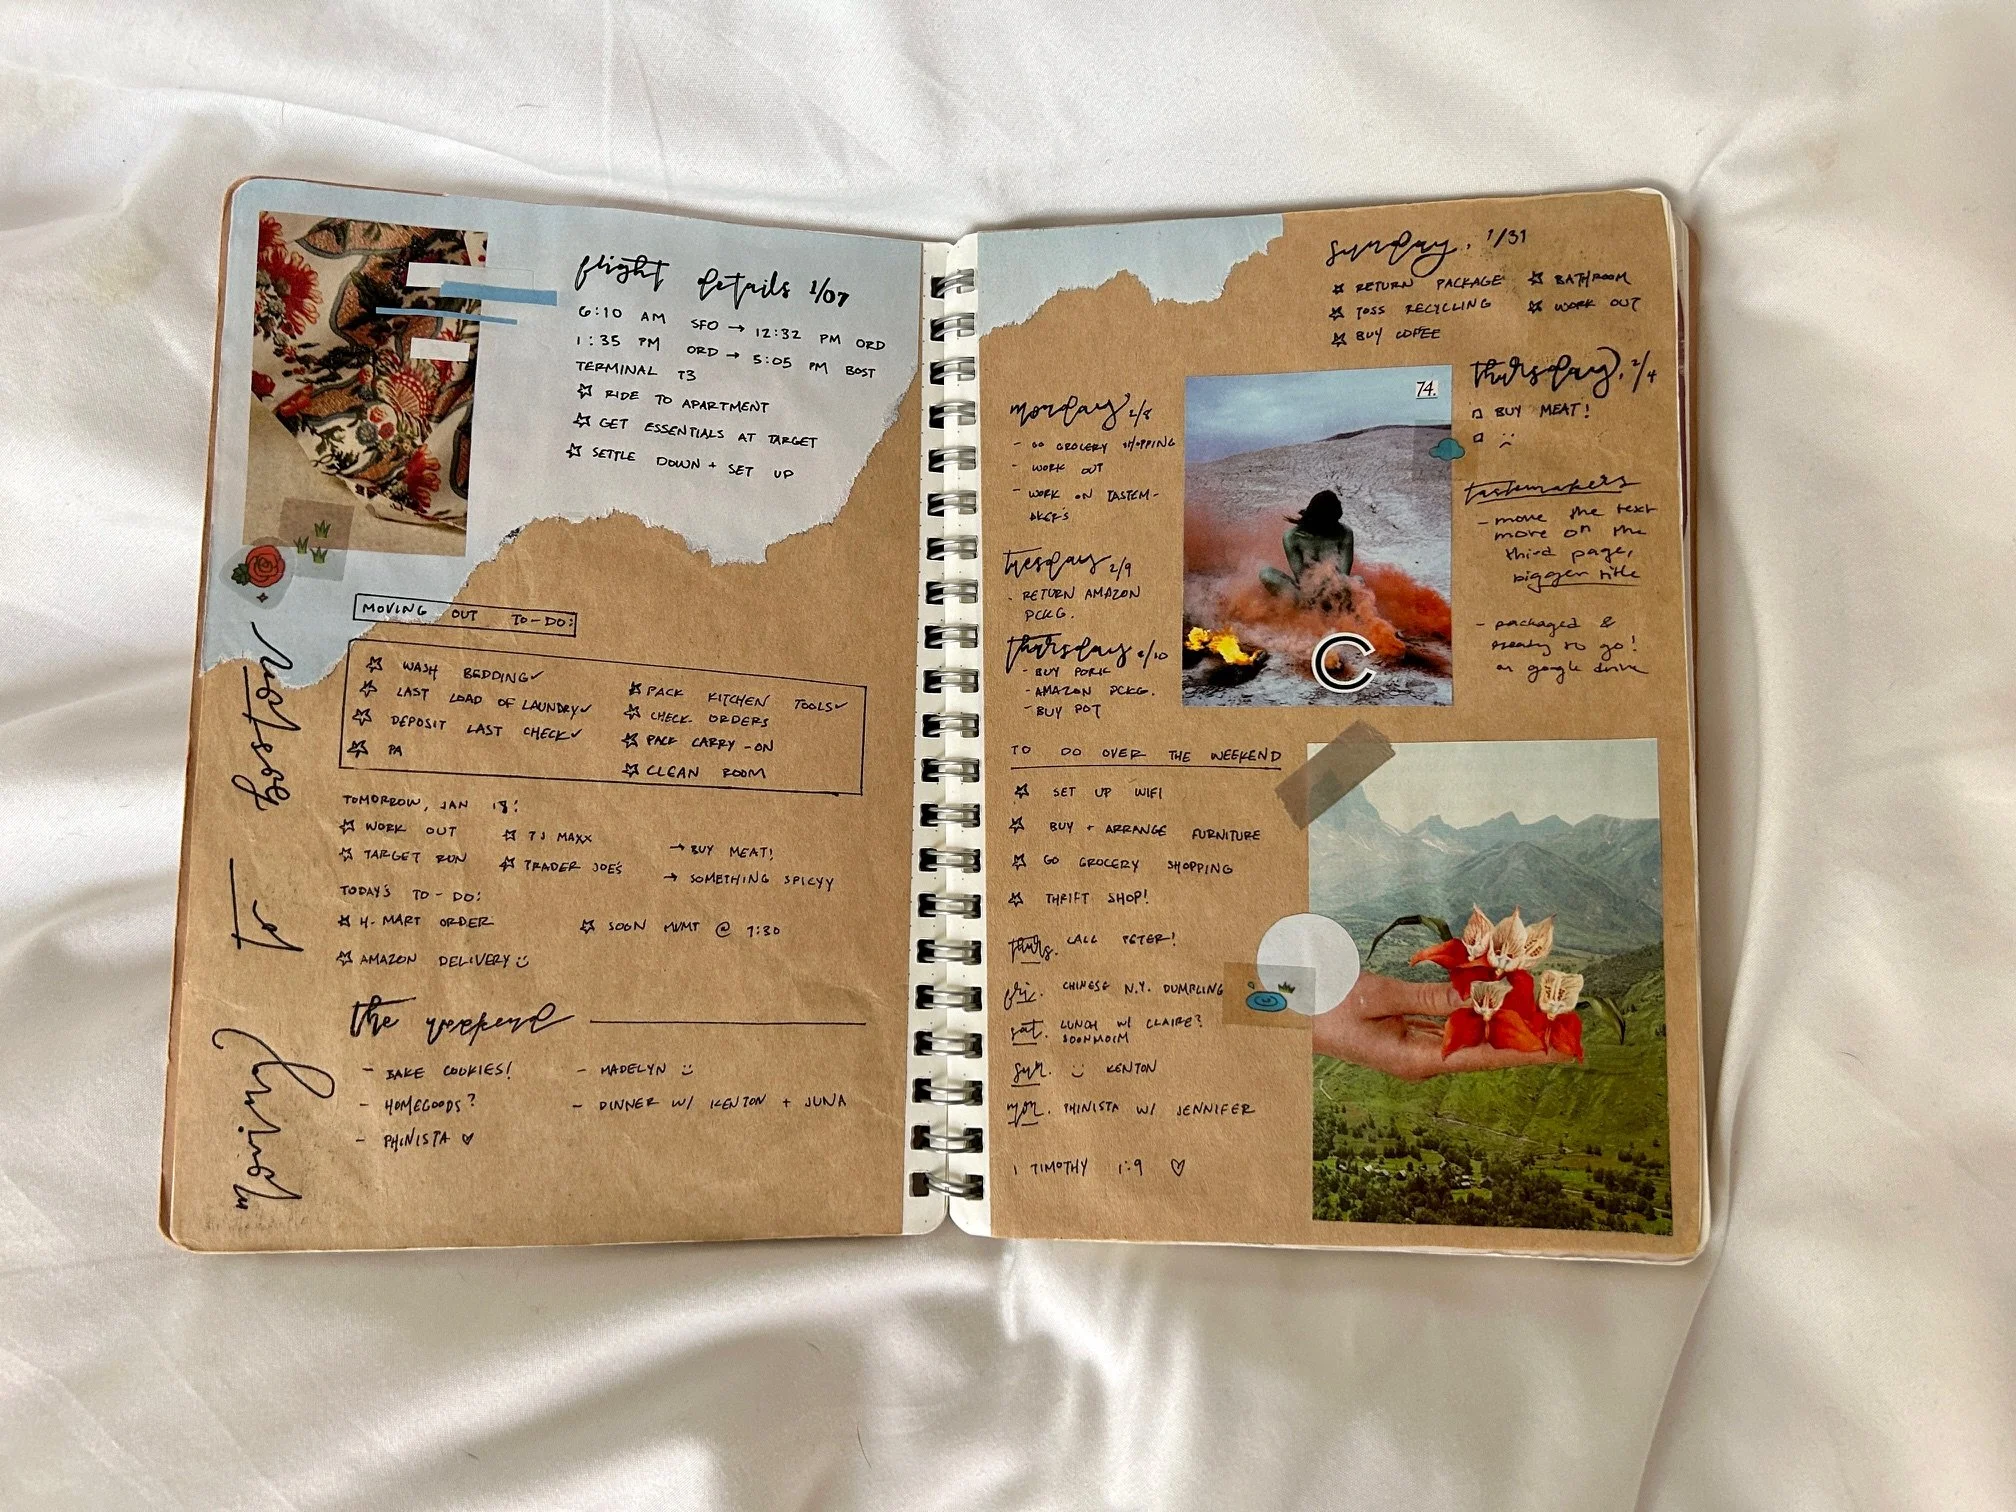 flight details 1/07
6:10 AM SFO → 12:32 PM ORD
1:35 PM ORD → 5:05 PM BOST
TERMINAL T3
☆ RIDE TO APARTMENT
☆ GET ESSENTIALS AT TARGET
☆ SETTLE DOWN + SET UP
MOVING OUT TO-DO:
☆ WASH BEDDING ✓
☆ LAST LOAD OF LAUNDRY ✓
☆ DEPOSIT LAST CHECK ✓
☆ PA
☆ PACK KITCHEN TOOLS ✓
☆ CHECK ORDERS
☆ PACK CARRY-ON
☆ CLEAN ROOM
TOMORROW, JAN 18:
☆ WORK OUT
☆ TARGET RUN
☆ TJ MAXX
☆ TRADER JOE'S
→ BUY MEAT!
→ SOMETHING SPICYY
TODAY'S TO-DO:
☆ H-MART ORDER
☆ AMAZON DELIVERY :)
☆ SOGN MVMT @ 7:30
the weekend
- BAKE COOKIES!
- HOMEGOODS?
- PHINISTA ♡
- MADELYN :)
- DINNER W/ KENTON + JUNA
sunday, 1/31
☆ RETURN PACKAGE
☆ TOSS RECYCLING
☆ BUY COFEE
☆ BATHROOM
☆ WORK OUT
monday 2/8
- GO GROCERY SHOPPING
- WORK OUT
- WORK ON TASTEM-
AKERS
tuesday 2/9
- RETURN AMAZON
PCKG.
thursday 2/10
- BUY PORK
- AMAZON PCKG.
- BUY POT
74.
C
thursday, 2/4
□ BUY MEAT!
□ :)
tastemakers
- move the text
more on the
third page,
bigger title
- packaged &
ready to go!
on google drive
TO DO OVER THE WEEKEND
☆ SET UP WIFI
☆ BUY + ARRANGE FURNITURE
☆ GO GROCERY SHOPPING
☆ THRIFT SHOP!
thurs. CALL PETER!
fri. CHINESE N.Y. DUMPLING
sat. LUNCH W/ CLAIRE?
SOONMOIM
sun. :) KENTON
mon. PHINISTA W/ JENNIFER
1 TIMOTHY 1:9 ♡